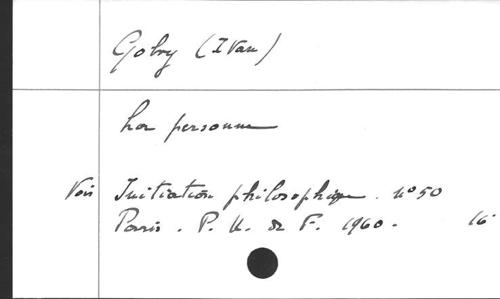 Gobry (Ivan)
La personne
Voir Initiation philosophique. n° 50
Paris. P. U. de F. 1960. 16°